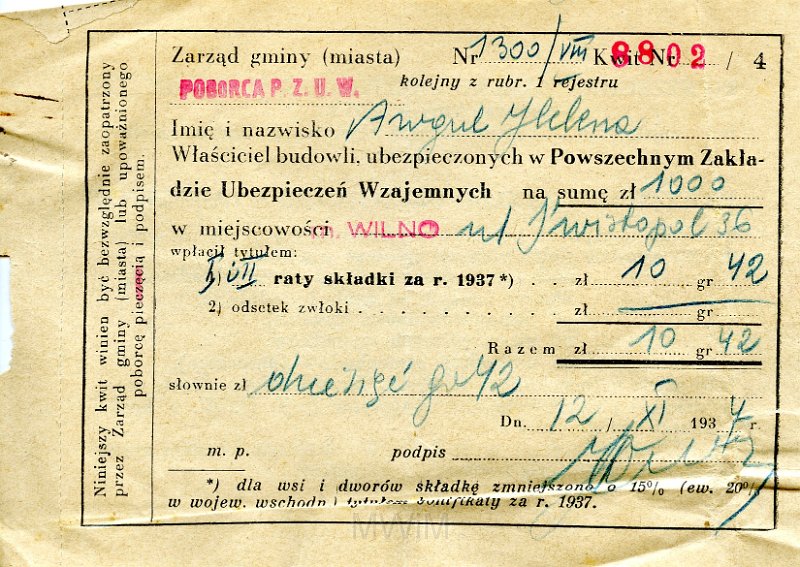 Zarząd gminy (miasta) Nr 1300/VIII Kwit Nr 8802 / 4
POBORCA P. Z. U. W. kolejny z rubr. 1 rejestru
Imię i nazwisko Awgul Helena
Właściciel budowli, ubezpieczonych w Powszechnym Zakła-
dzie Ubezpieczeń Wzajemnych na sumę zł 1000
w miejscowości m. WILNO ul Świstopol 36
wpłacił tytułem:
1) I i II raty składki za r. 1937*) . . zł 10 gr 42
2) odsetek zwłoki . . . . . . . . . . zł gr
Razem zł 10 gr 42
słownie zł dziesięć gr 42
Dn. 12 / XI 1937 r.
m. p. podpis
*) dla wsi i dworów składkę zmniejszono o 15% (ew. 20%
w wojew. wschodn.) tytułem bonifikaty za r. 1937.
Niniejszy kwit winien być bezwzględnie zaopatrzony
przez Zarząd gminy (miasta) lub upoważnionego
poborcę pieczęcią i podpisem.